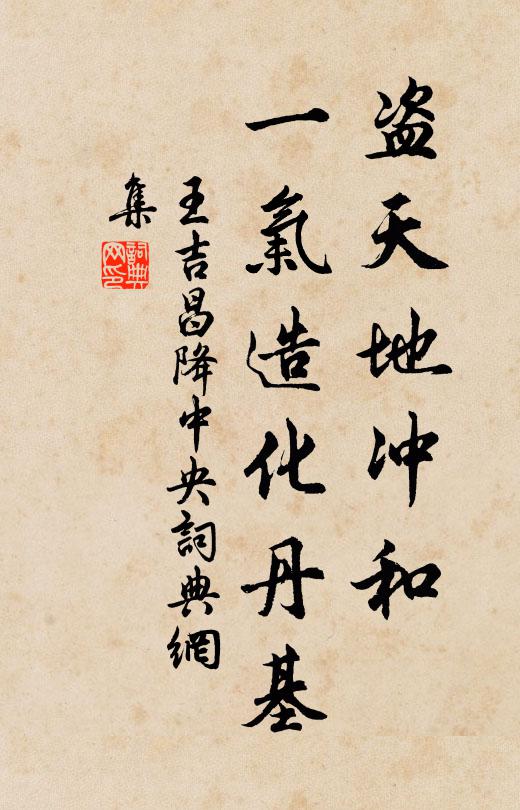 盗天地冲和
一氣造化丹基
王吉昌降中央詞典網
集
詞典网印